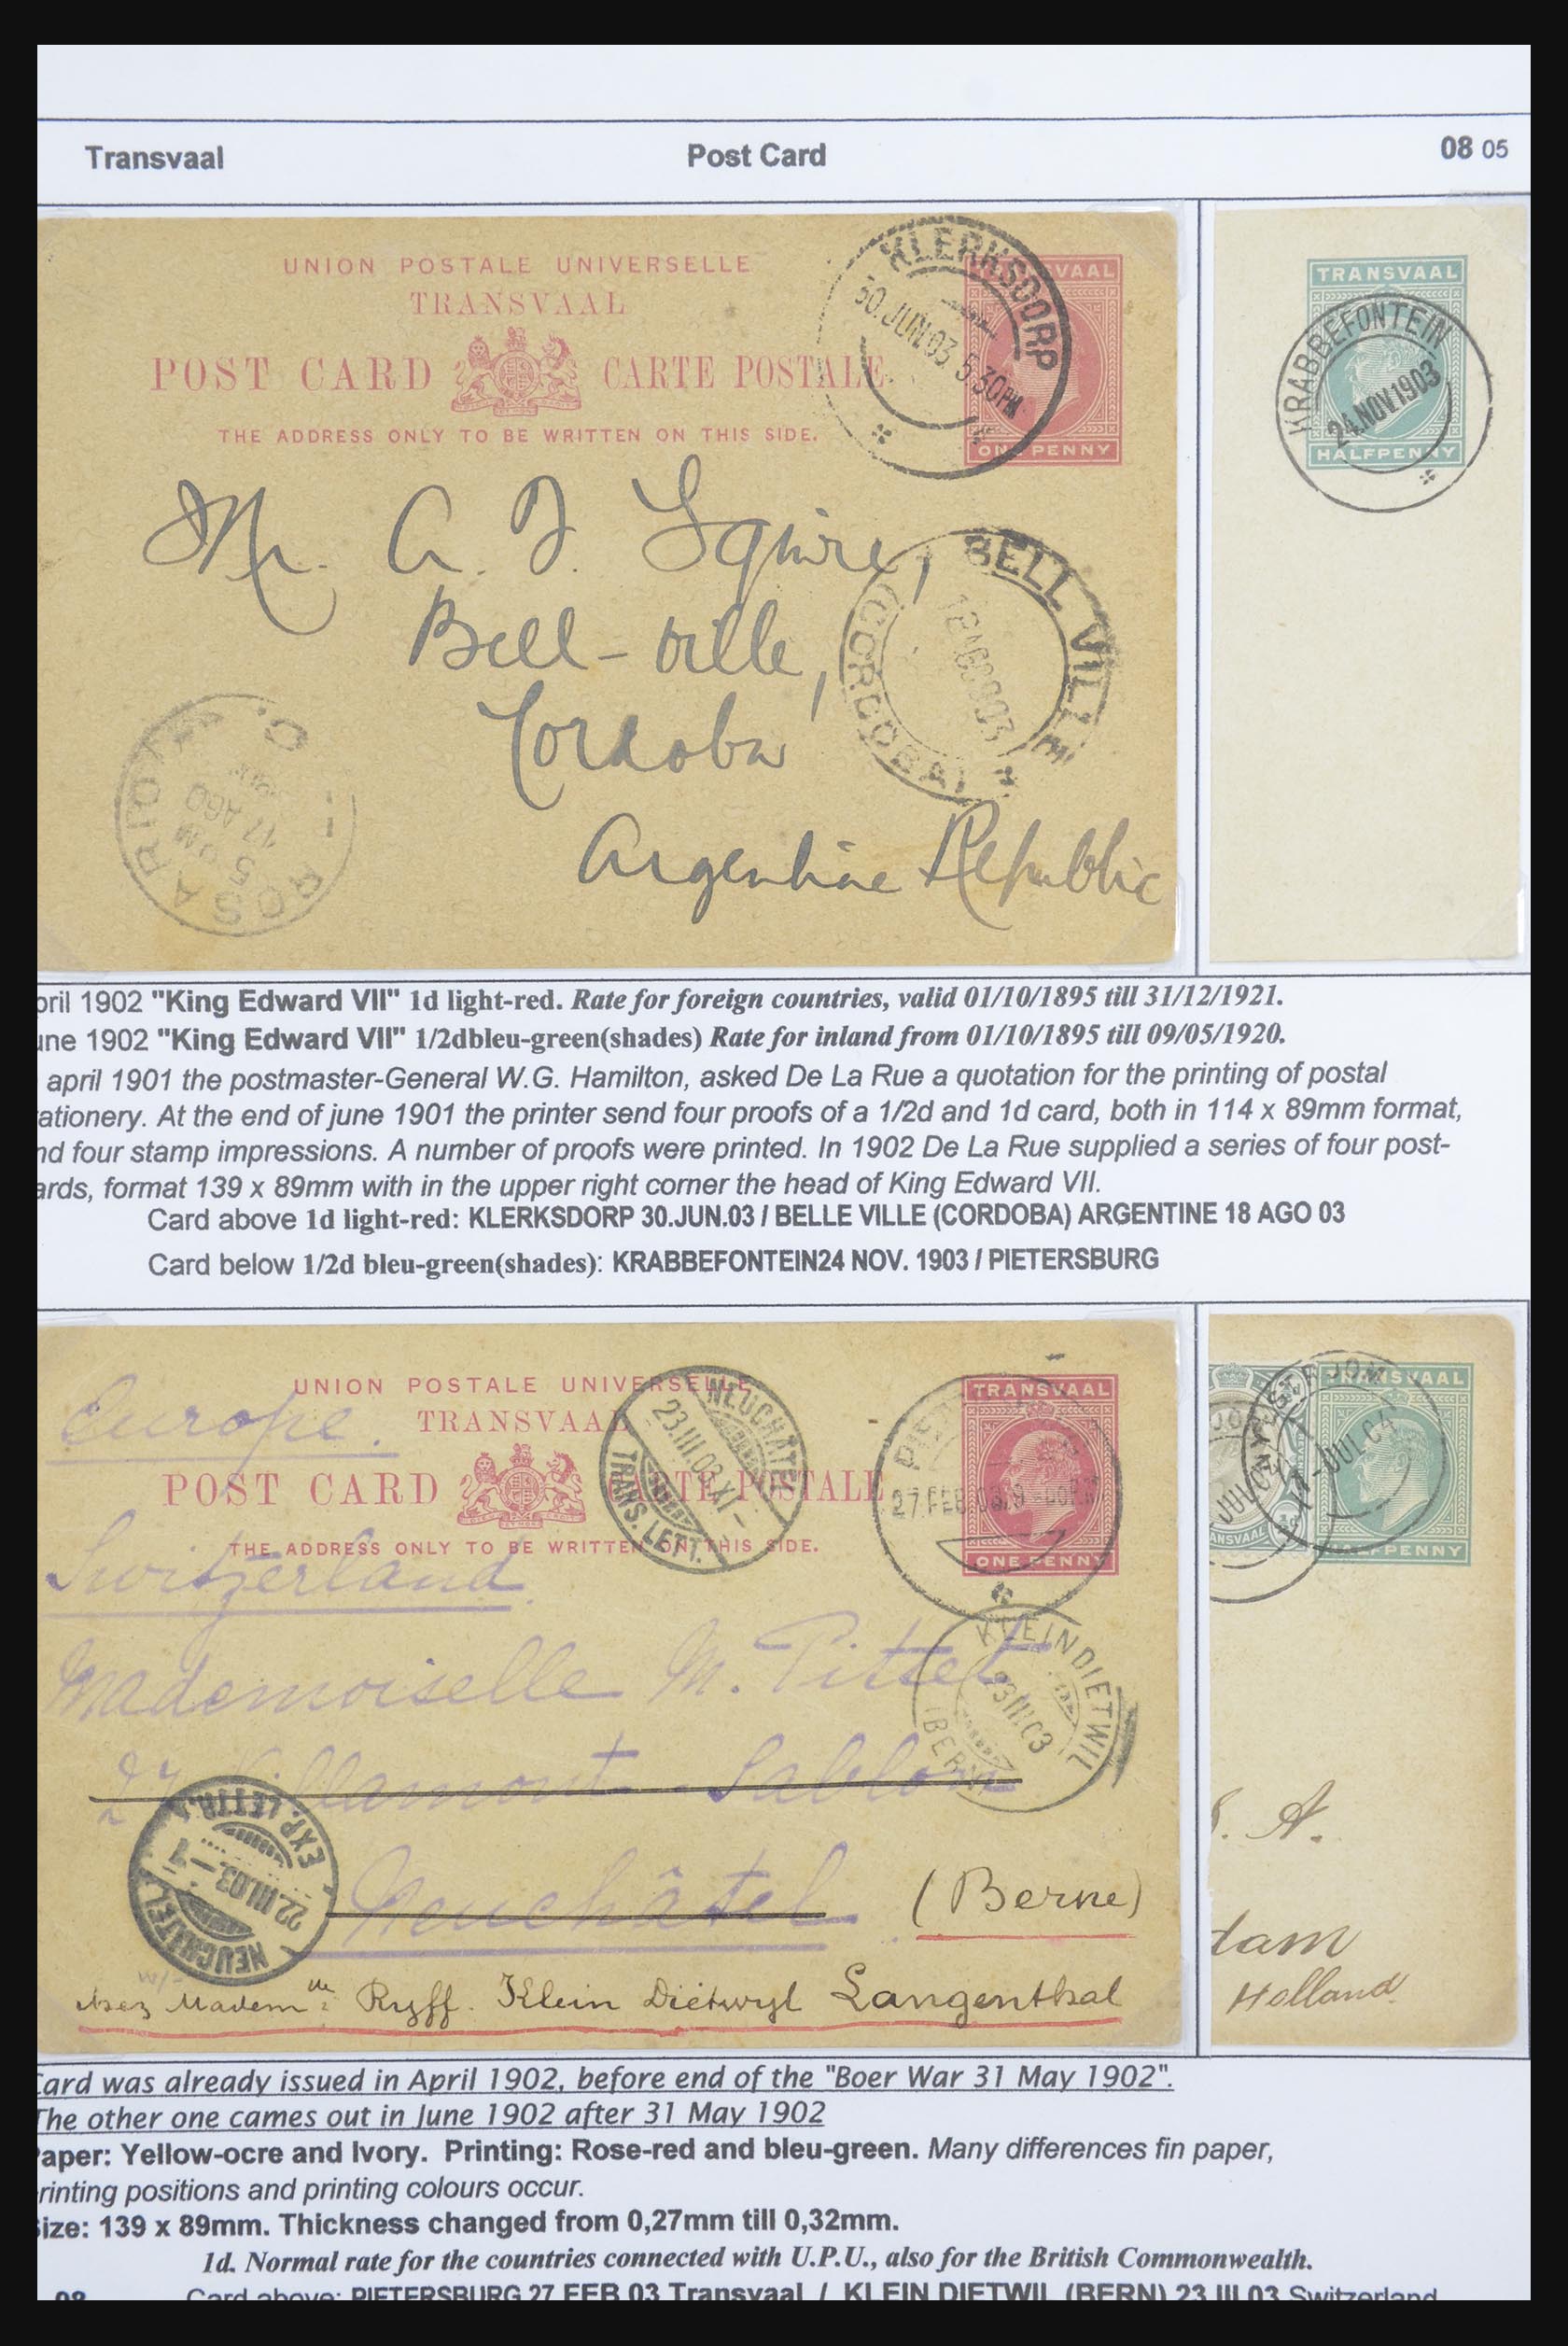 Transvaal Post Card 08 05
UNION POSTALE UNIVERSELLE
TRANSVAAL
POST CARD CARTE POSTALE
THE ADDRESS ONLY TO BE WRITTEN ON THIS SIDE.
TRANSVAAL
ONE PENNY
KLERKSDORP
30.JUN.03 5.30PM
Mr. A. J. Squire,
Bell-ville,
Cordoba
Argentine Republic
BELL VILLE
(CORDOBA)
ROSARIO
17 AGO
TRANSVAAL
HALFPENNY
KRABBEFONTEIN
24.NOV.1903
pril 1902 "King Edward VII" 1d light-red. Rate for foreign countries, valid 01/10/1895 till 31/12/1921.
une 1902 "King Edward VII" 1/2dbleu-green(shades) Rate for inland from 01/10/1895 till 09/05/1920.
april 1901 the postmaster-General W.G. Hamilton, asked De La Rue a quotation for the printing of postal
ationery. At the end of june 1901 the printer send four proofs of a 1/2d and 1d card, both in 114 x 89mm format,
nd four stamp impressions. A number of proofs were printed. In 1902 De La Rue supplied a series of four post-
ards, format 139 x 89mm with in the upper right corner the head of King Edward VII.
Card above 1d light-red: KLERKSDORP 30.JUN.03 / BELLE VILLE (CORDOBA) ARGENTINE 18 AGO 03
Card below 1/2d bleu-green(shades): KRABBEFONTEIN24 NOV. 1903 / PIETERSBURG
UNION POSTALE UNIVERSELLE
TRANSVAAL
POST CARD CARTE POSTALE
THE ADDRESS ONLY TO BE WRITTEN ON THIS SIDE.
TRANSVAAL
ONE PENNY
27.FEB.03
NEUCHATEL
23.III.03.XI-
TRANS. LETT.
Europe.
Switzerland
Mademoiselle M. Pittet
Neuchâtel
(Berne)
chez Madem Ryff. Klein Dietwyl Langenthal
KLEINDIETWIL
23.III.03
(BERN)
NEUCHATEL
22.III.03-1
EXP. LETTR.
TRANSVAAL
HALFPENNY
S. A.
dam
Holland
Card was already issued in April 1902, before end of the "Boer War 31 May 1902".
The other one cames out in June 1902 after 31 May 1902
Paper: Yellow-ocre and Ivory. Printing: Rose-red and bleu-green. Many differences fin paper,
rinting positions and printing colours occur.
Size: 139 x 89mm. Thickness changed from 0,27mm till 0,32mm.
1d. Normal rate for the countries connected with U.P.U., also for the British Commonwealth.
08 Card above: PIETERSBURG 27 FEB 03 Transvaal / KLEIN DIETWIL (BERN) 23 III 03 Switzerland